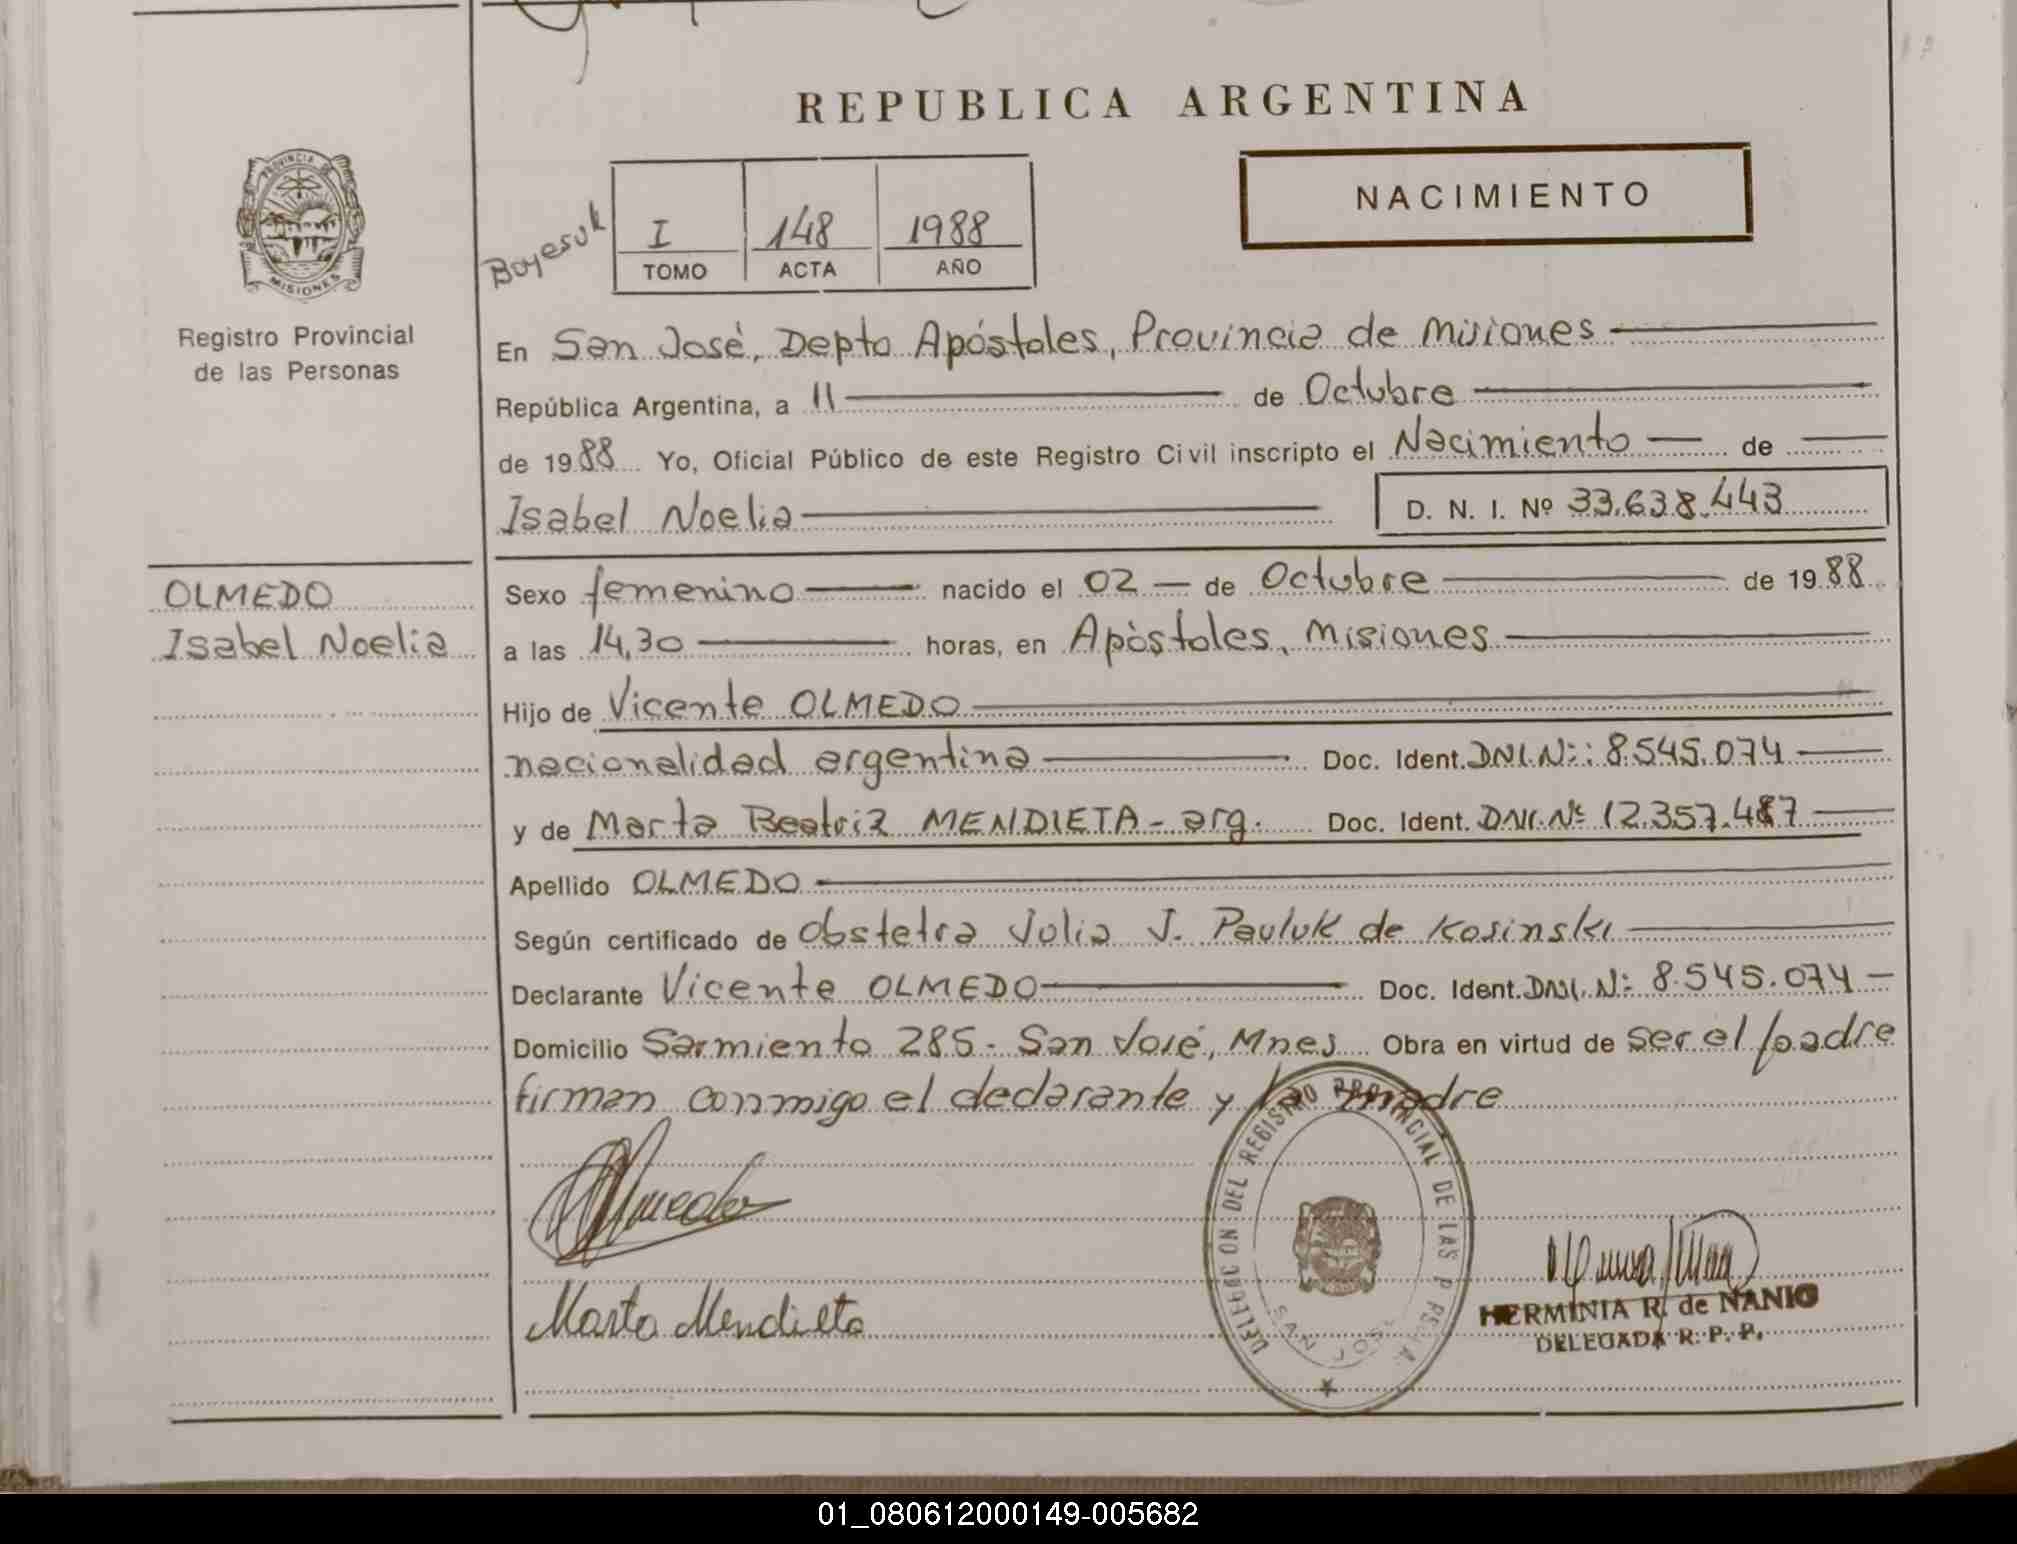 REPUBLICA ARGENTINA
PROVINCIA DE
MISIONES
Registro Provincial
de las Personas
Boyesuk
I 148 1988
TOMO ACTA AÑO
NACIMIENTO
En San José, Depto Apóstoles, Provincia de Misiones
República Argentina, a 11 de Octubre
de 1988 Yo, Oficial Público de este Registro Civil inscripto el Nacimiento de
Isabel Noelia D. N. I. Nº 33.638.443
OLMEDO
Isabel Noelia
Sexo femenino nacido el 02 de Octubre de 1988
a las 14,30 horas, en Apóstoles, Misiones
Hijo de Vicente OLMEDO
nacionalidad argentina Doc. Ident. DNI.Nº: 8.545.074
y de Marta Beatriz MENDIETA - arg. Doc. Ident. DNI.Nº 12.357.487
Apellido OLMEDO
Según certificado de Obstetra Julia J. Pauluk de Kosinski
Declarante Vicente OLMEDO Doc. Ident. DNI.Nº 8.545.074
Domicilio Sarmiento 285 - San José, Mnes Obra en virtud de ser el padre
firman conmigo el declarante y la madre
Olmedo
Marta Mendieta
DELEGACION DEL REGISTRO PROVINCIAL DE LAS PERSONAS
SAN JOSE
HERMINIA R. de NANIO
DELEGADA R. P. P.
01_080612000149-005682